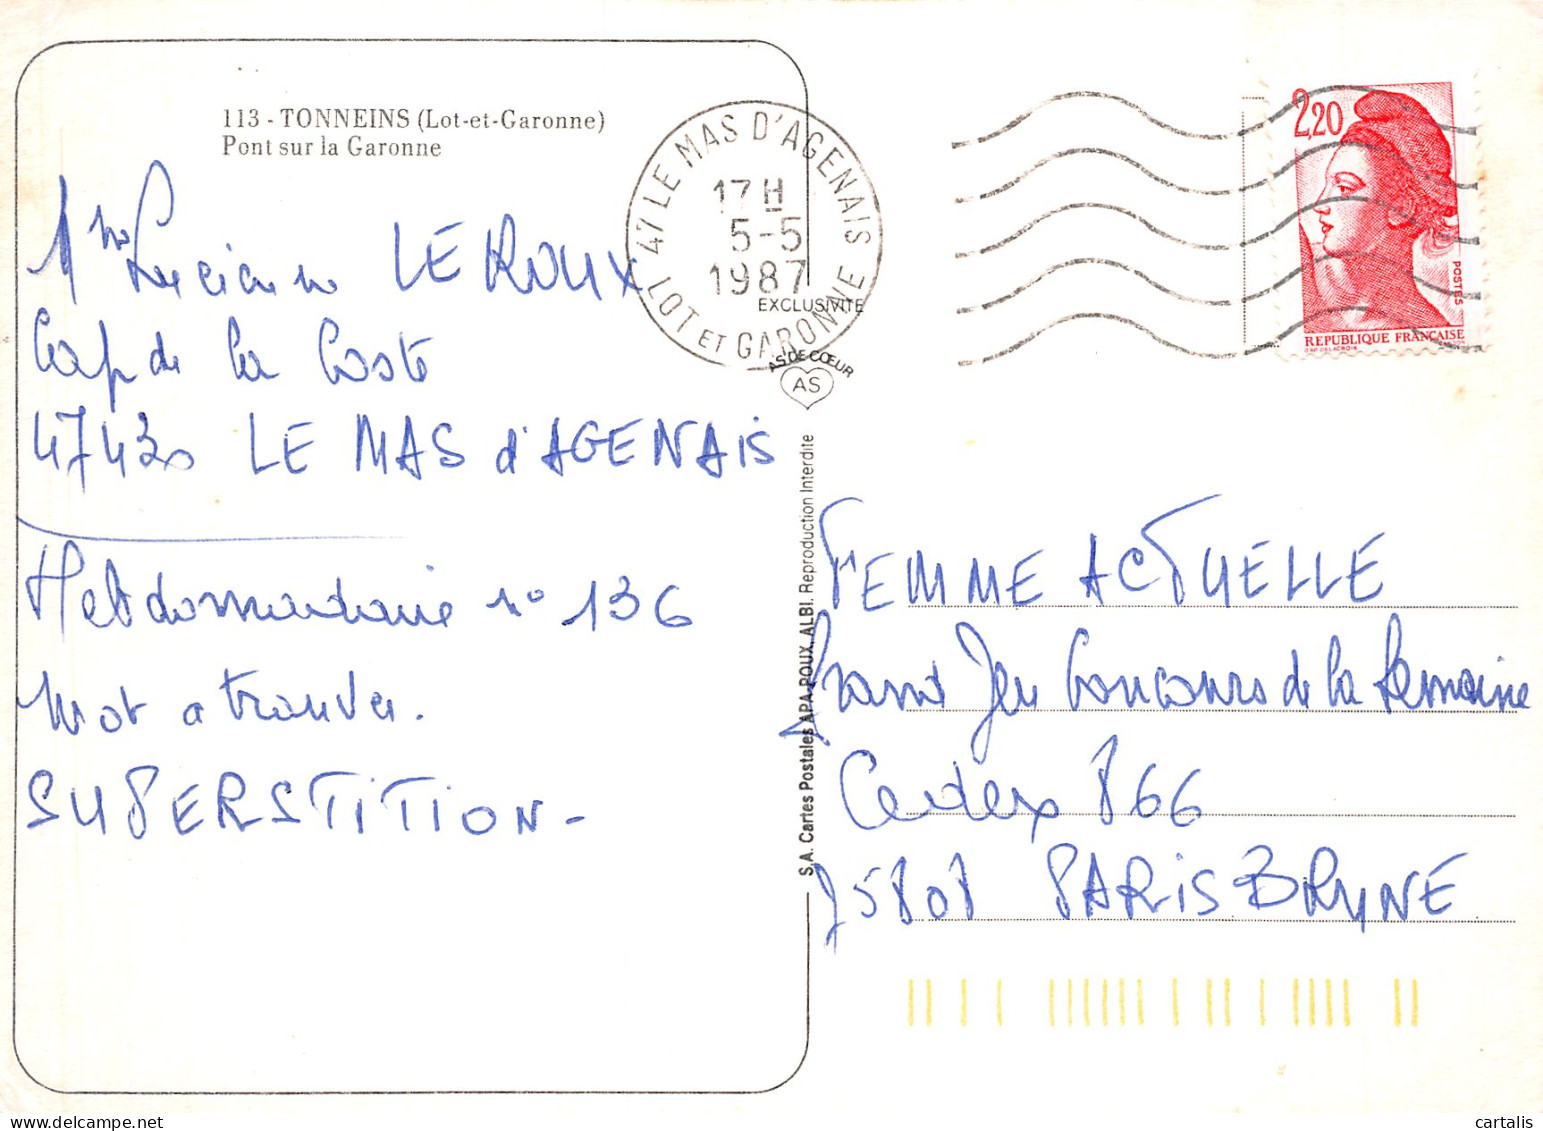 113 - TONNEINS (Lot-et-Garonne)
Pont sur la Garonne
Mme Lucienne LE ROUX
Cap de la Coste
47430 LE MAS d'AGENAIS
Hebdomadaire n° 136
Mot a trouver.
SUPERSTITION -
47 LE MAS D'AGENAIS
17 H
5-5
1987
LOT ET GARONNE
EXCLUSIVITE
AS DE CŒUR
AS
S.A. Cartes Postales APA-POUX, ALBI. Reproduction Interdite
2,20
POSTES
REPUBLIQUE FRANÇAISE
FEMME ACTUELLE
Grand Jeu Concours de la Semaine
Cedex 866
75808 PARIS BRUNE
cartalis